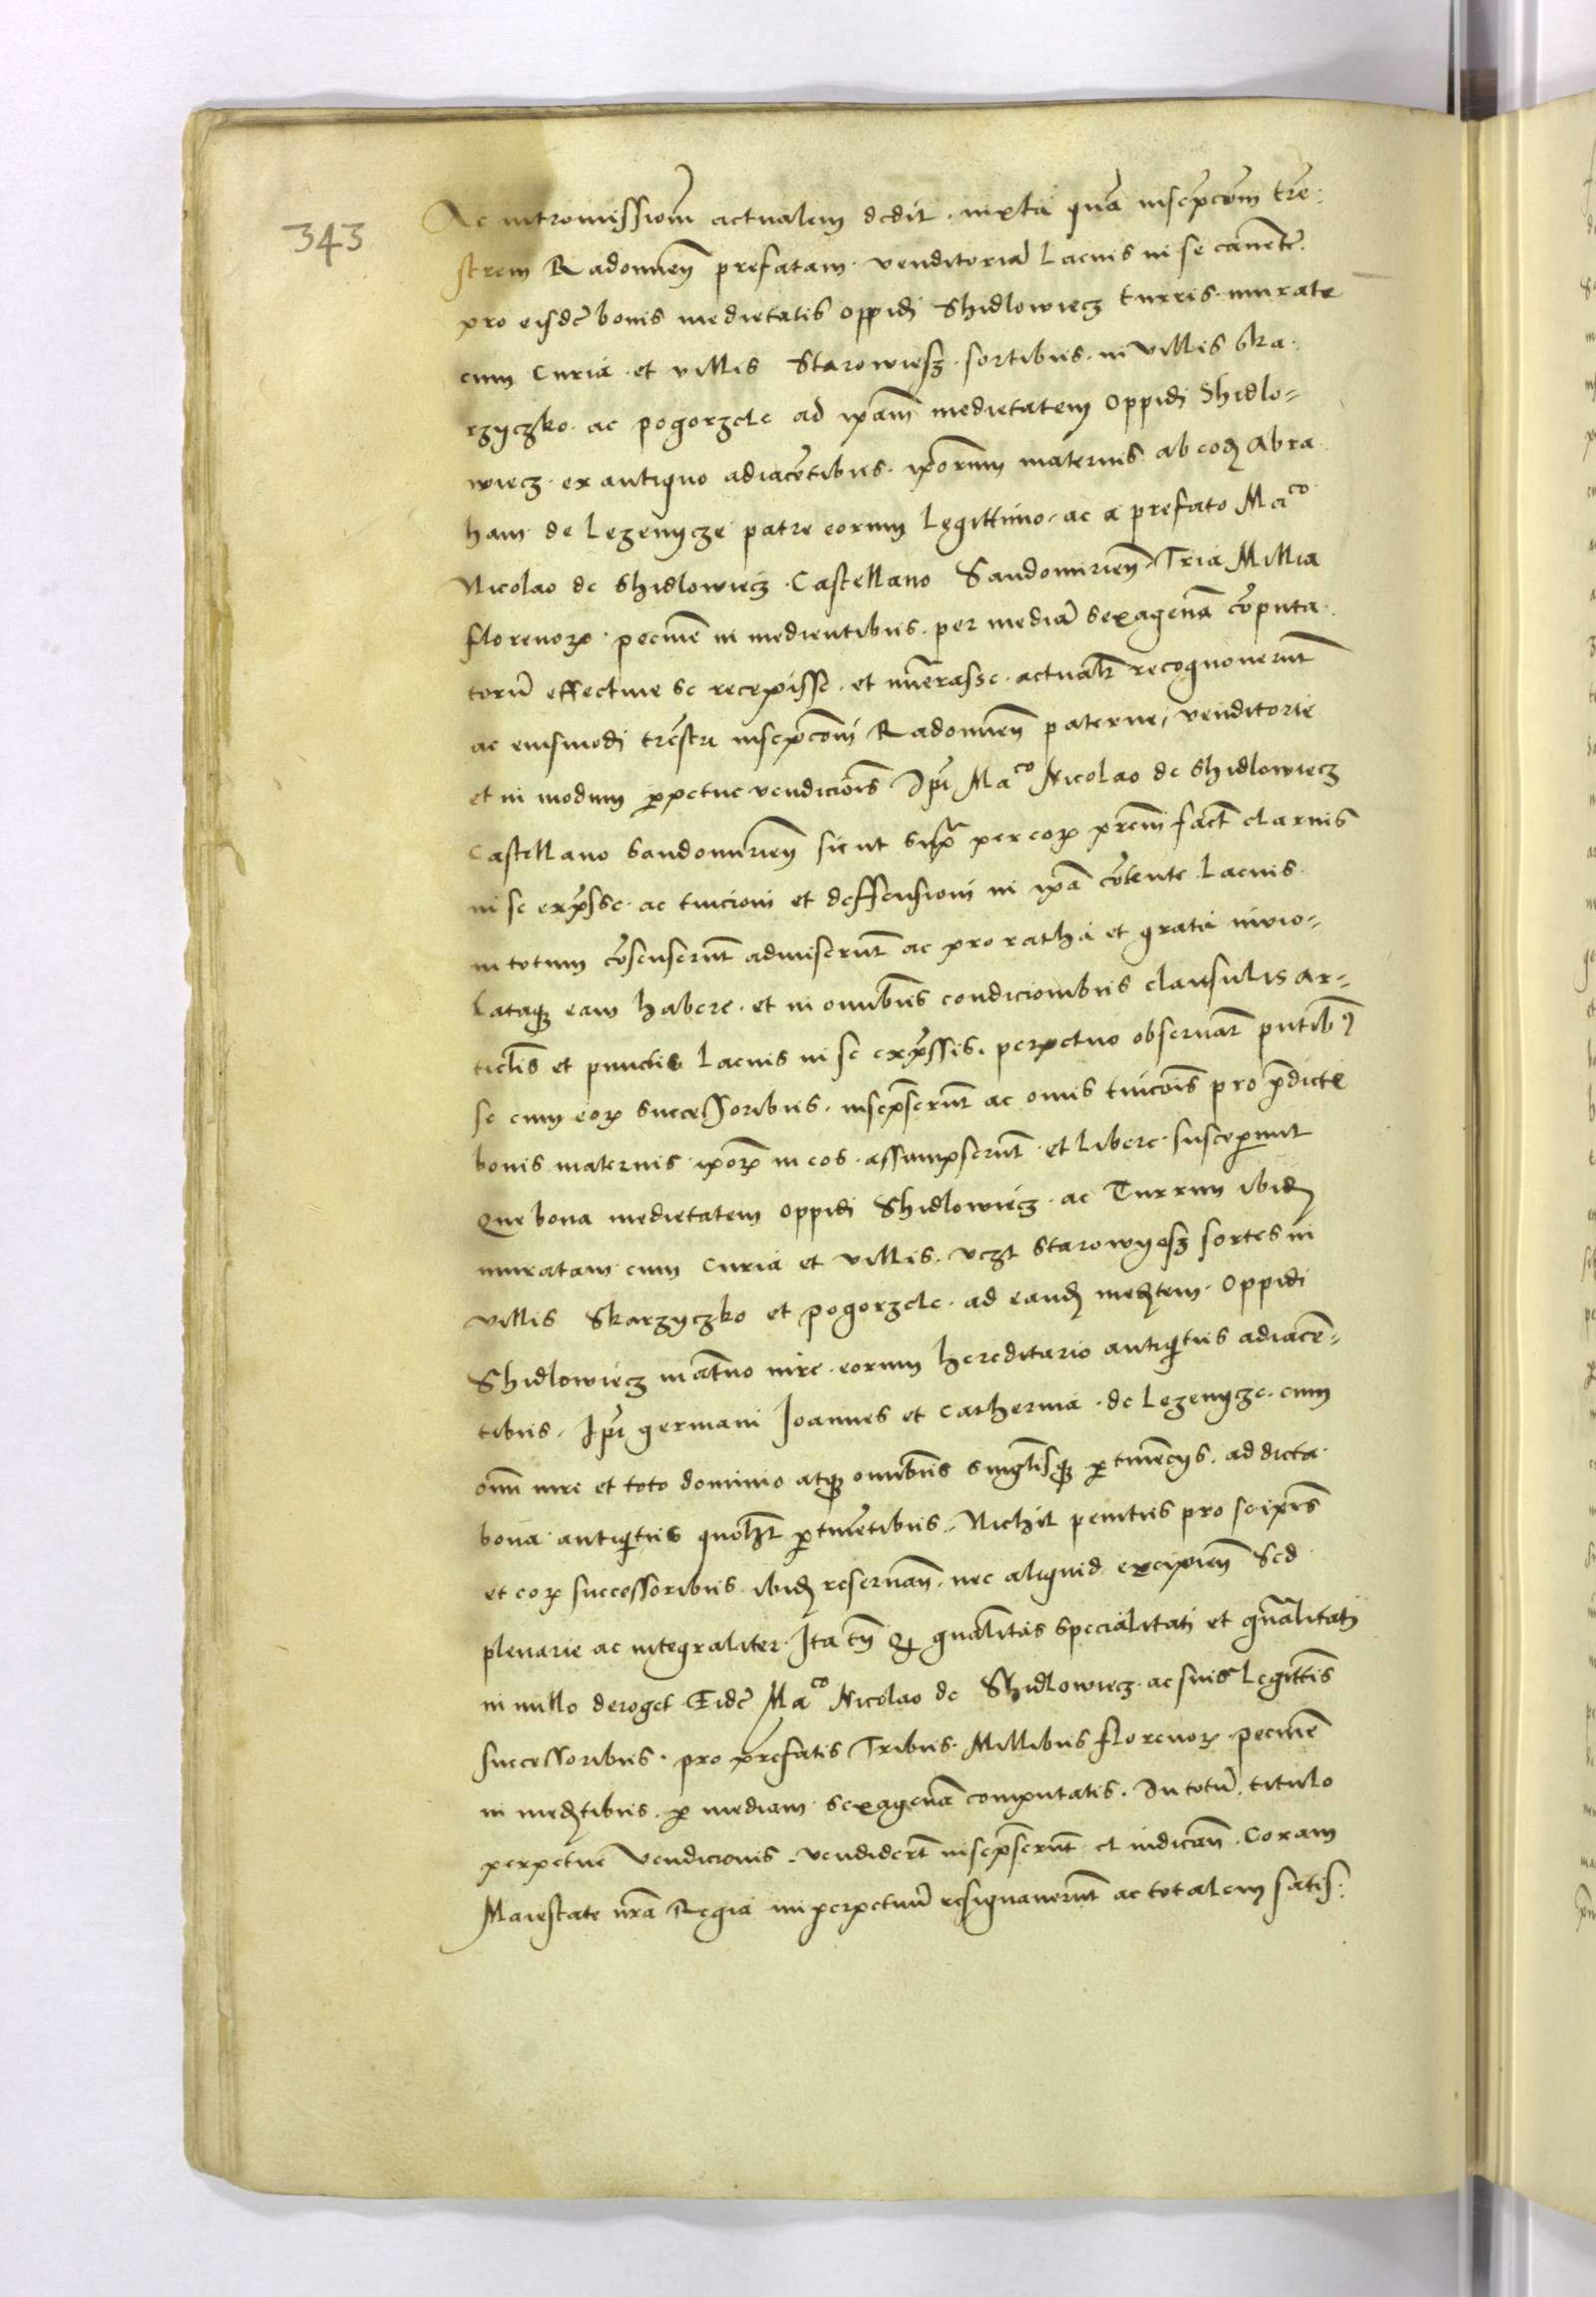 343
Ac intromissiom̄ actualem dedit. iuxta quā inscrp̄com̄ trē-
strem Radomien̄ prefatam. venditoriā lacius in se canentē.
pro eisdē bonis medietatis oppidi Shidlowiecz turris. murate
cum Curia. et villis Starowiesz. sortibus. in villis Ska-
rzyczko. ac pogorzele ad ip̄am medietatem oppidi Shidlo-
wiecz. ex antiquo adiacētibus. ip̄orum maternis ab eodem Abra
ham de lezenycze patre eorum legittimo. ac a prefato Mco
Nicolao de Shidlowiecz. Castellano Sandomirien̄. Tria Millia
florenorum. pecunie in medientibus. per mediā sexagenā cōputa
torū effective se recepisse. et nūerasse. actualr̄ recognoverūt
ac eiusmodi trēstri inscrp̄coni Radomien̄ paterne, venditorie
et in modum perpetue vendicionis Ip̄i Maco Nicolao de Shidlowiecz
Castellano Sandomirien̄ sicut supra per eorum prem̄ fact̄ clarius
in se exprsse. ac tuicioni et deffensioni in ip̄a cōtente lacius
in totum cōsenserūt admiserūt ac pro ratha et grata invio-
lataque eam habere. et in omnibus condicionibus clausulis ar-
ticlis et punctis lacius in se exprssis. perpetuo observar̄ pn̄tibus
se cum eorum successoribus. inscrp̄serūt ac onus tuicōis pro prdicte
bonis maternis ip̄orum in eos. assumpserūt. et libere. susceperunt
Que bona medietatem oppidi Shidlowiecz. ac Turrim ibidem
muratam cum Curia et villis. vczt Starowyesz sortes in
villis Skarzyczko et pogorzele. ad eandem medtem. Oppidi
Shidlowiecz mat̄no iure. eorum hereditario antiquitus adiacē-
tibus. Ip̄i germani Joannes et Catherina. de lezenycze. cum
omni iure et toto dominio atque omnibus singlisque pertinēcys. ad dicta
bona antiquitus quolr̄ pertinētibus. Nichil penitus pro se ip̄is
et eorum successoribus. ibidem reservan̄. nec aliquid excipien̄ Sed
plenarie ac integraliter. Ita tn̄ quod gn̄alitas specialitati et gn̄alitati
in nullo deroget Eidē Maco Nicolao de Shidlowiecz. ac suis legittis
successoribus. pro prefatis Tribus. Millibus florenorum. pecunie
in medtibus. per mediam sexagenā computatis. In totū. titulo
perpetue Vendicionis. vendiderūt inscrp̄serūt et indican̄. Coram
Maiestate nr̄a Regia in perpetuū resignaverūt ac totalem satis-